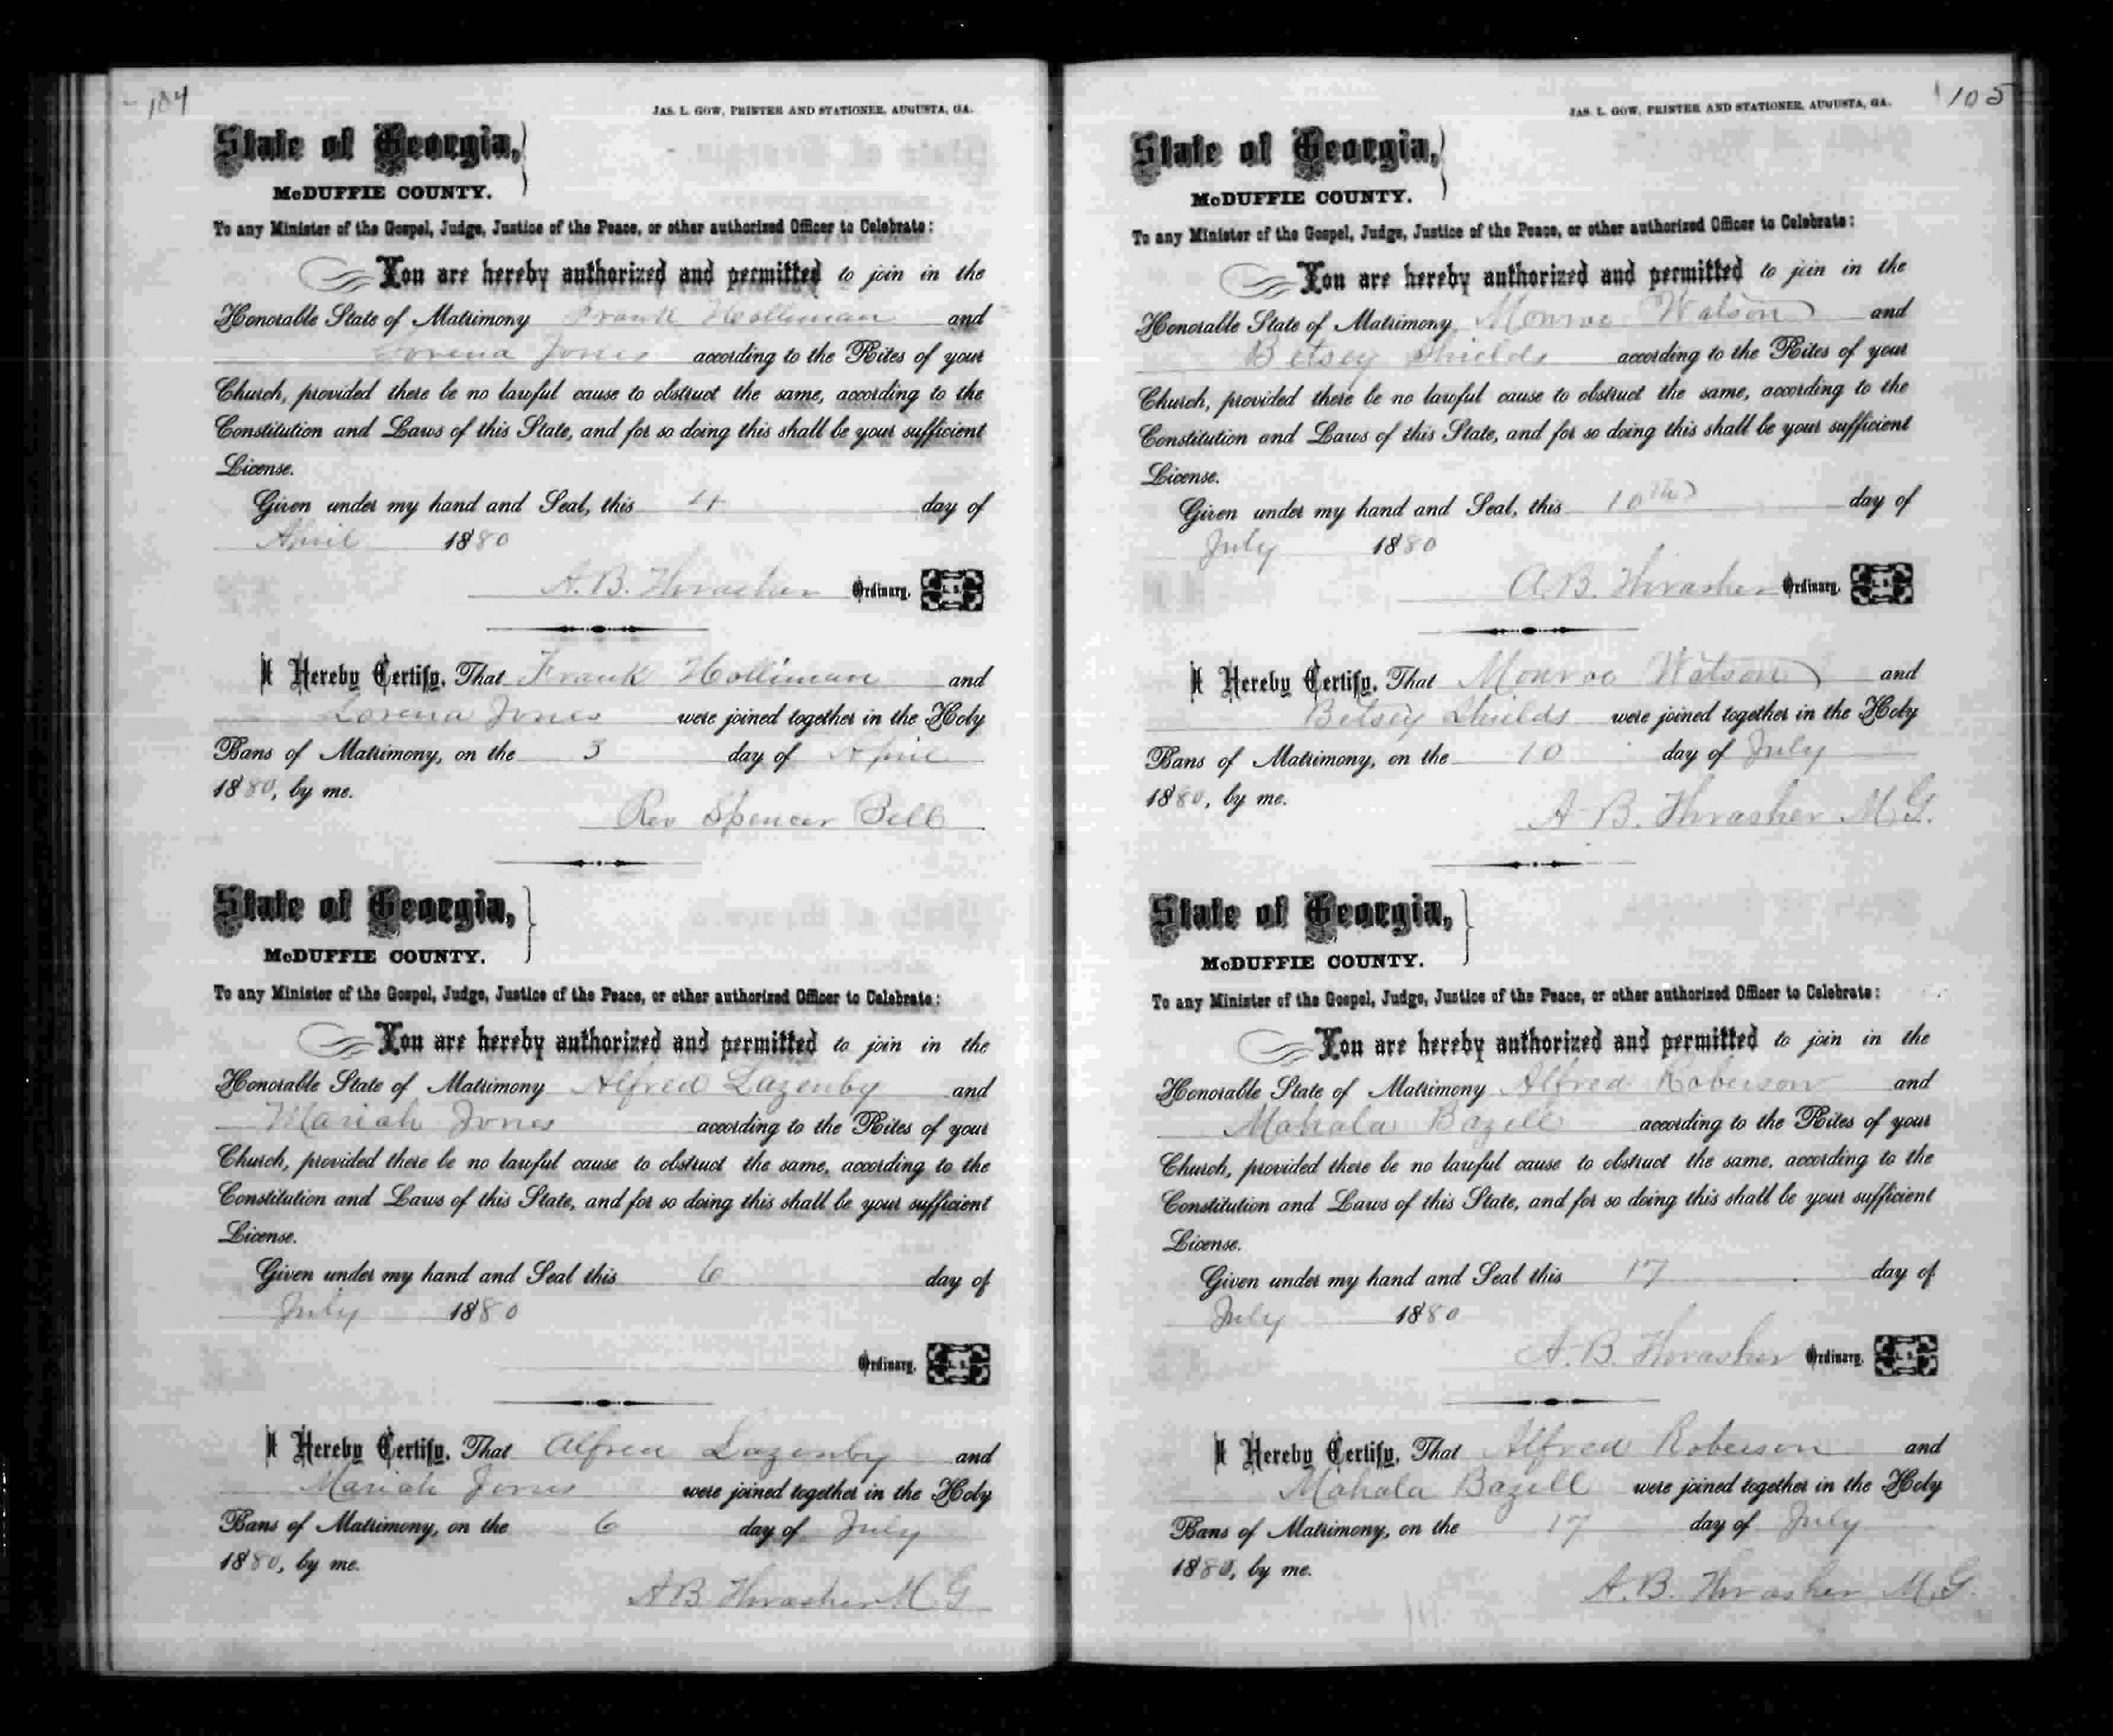 104
JAS. L. GOW, PRINTER AND STATIONER, AUGUSTA, GA.
State of Georgia,
McDUFFIE COUNTY.
To any Minister of the Gospel, Judge, Justice of the Peace, or other authorized Officer to Celebrate:
You are hereby authorized and permitted to join in the
Honorable State of Matrimony Frank Holliman and
Lorena Jones according to the Rites of your
Church, provided there be no lawful cause to obstruct the same, according to the
Constitution and Laws of this State, and for so doing this shall be your sufficient
License.
Given under my hand and Seal, this 4 day of
April 1880
A. B. Thrasher Ordinary. L. S.
I Hereby Certify, That Frank Holliman and
Lorena Jones were joined together in the Holy
Bans of Matrimony, on the 3 day of April
1880, by me.
Rev Spencer Bell
State of Georgia,
McDUFFIE COUNTY.
To any Minister of the Gospel, Judge, Justice of the Peace, or other authorized Officer to Celebrate:
You are hereby authorized and permitted to join in the
Honorable State of Matrimony Alfred Lazenby and
Mariah Jones according to the Rites of your
Church, provided there be no lawful cause to obstruct the same, according to the
Constitution and Laws of this State, and for so doing this shall be your sufficient
License.
Given under my hand and Seal this 6 day of
July 1880
Ordinary. L. S.
I Hereby Certify, That Alfred Lazenby and
Mariah Jones were joined together in the Holy
Bans of Matrimony, on the 6 day of July
1880, by me.
A B Thrasher M G
105
JAS. L. GOW, PRINTER AND STATIONER, AUGUSTA, GA.
State of Georgia,
McDUFFIE COUNTY.
To any Minister of the Gospel, Judge, Justice of the Peace, or other authorized Officer to Celebrate:
You are hereby authorized and permitted to join in the
Honorable State of Matrimony Monroe Watson and
Betsey Shields according to the Rites of your
Church, provided there be no lawful cause to obstruct the same, according to the
Constitution and Laws of this State, and for so doing this shall be your sufficient
License.
Given under my hand and Seal, this 10th day of
July 1880
A. B. Thrasher Ordinary. L. S.
I Hereby Certify, That Monroe Watson and
Betsey Shields were joined together in the Holy
Bans of Matrimony, on the 10 day of July
1880, by me.
A B. Thrasher M. G.
State of Georgia,
McDUFFIE COUNTY.
To any Minister of the Gospel, Judge, Justice of the Peace, or other authorized Officer to Celebrate:
You are hereby authorized and permitted to join in the
Honorable State of Matrimony Alfred Roberson and
Mahala Bazell according to the Rites of your
Church, provided there be no lawful cause to obstruct the same, according to the
Constitution and Laws of this State, and for so doing this shall be your sufficient
License.
Given under my hand and Seal this 17 day of
July 1880
A. B. Thrasher Ordinary. L. S.
I Hereby Certify, That Alfred Roberson and
Mahala Bazell were joined together in the Holy
Bans of Matrimony, on the 17 day of July
1880, by me.
A. B. Thrasher M. G.